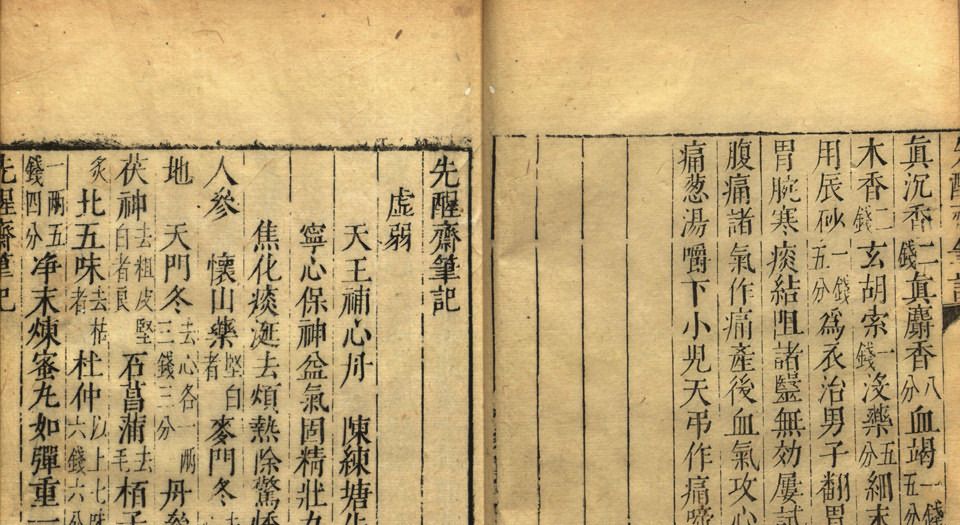 眞沉香二錢眞麝香八分血竭一錢五分
木香二錢玄胡索一錢沒藥五分細末
用辰砂一錢五分爲衣治男子翻胃
胃脘寒痰結咀諸毉無効屢試
腹痛諸氣作痛產後血氣攻心
痛葱湯嚼下小兒天弔作痛啼
先醒齋筆記
虛弱
天王補心丹 陳練塘
寧心保神益氣固精壯
焦化痰涎去煩熱除驚悸
人參 懷山藥堅白者 麥門冬去
地 天門冬去心各一兩三錢三分 丹參
茯神去粗皮堅白者良 石菖蒲去毛 栢子
炙 北五味去枯者 杜仲以上七味六錢六分
一兩五錢四分净末煉蜜丸如彈重一
先醒齋筆記